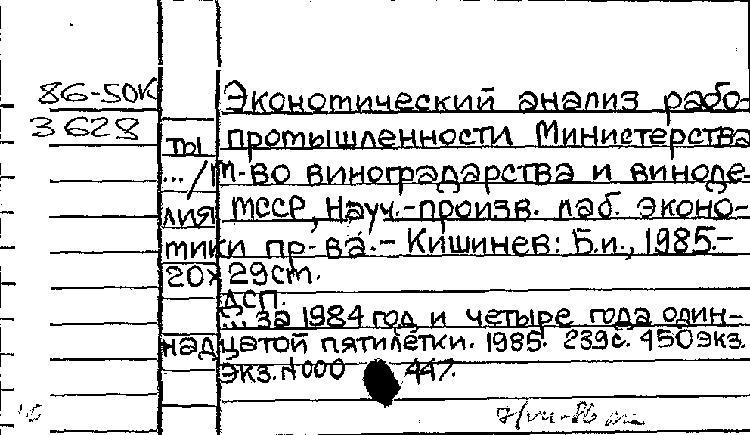 86-50К Экономический анализ рабо-
3628
ты промышленности Министерства
.../М-во виноградарства и виноде-
лия МССР, Науч.-произв. лаб. эконо-
мики пр-ва.- Кишинев: Б.и., 1985.-
20×29см.
ДСП.
... за 1984 год и четыре года один-
надцатой пятилетки. 1985. 239с. 450экз.
Экз.N000447.